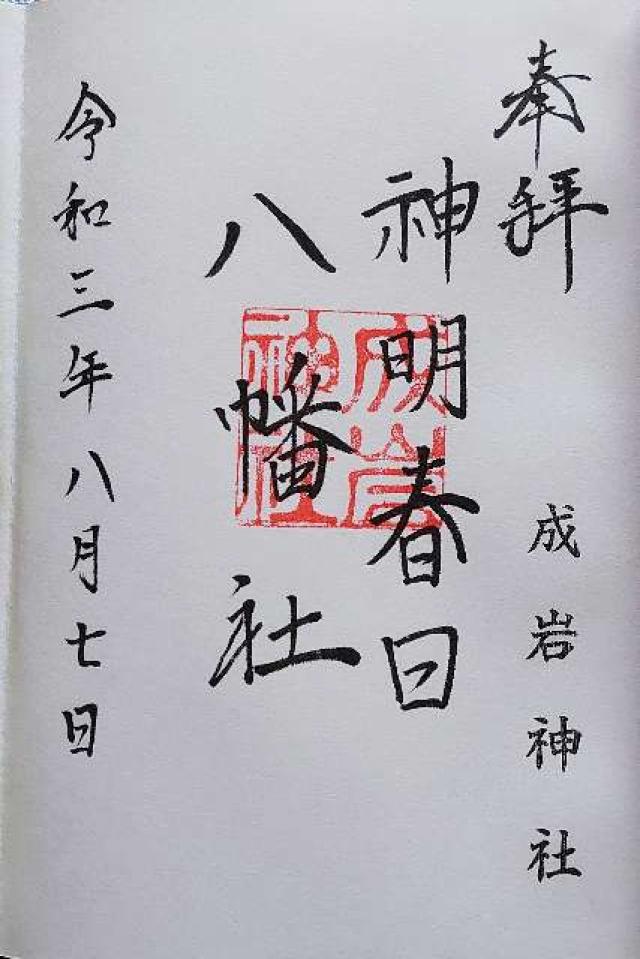 奉拝
成岩神社
神明春日
八幡社
成岩神社
令和三年八月七日